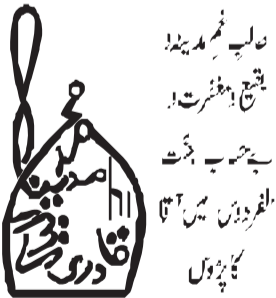 طالبِ غمِ مدینہ و
بقیع و مغفرت و
بے حساب جنّت
الفردوس میں آقا
کا پڑوس
محمد
الیاس
قادری